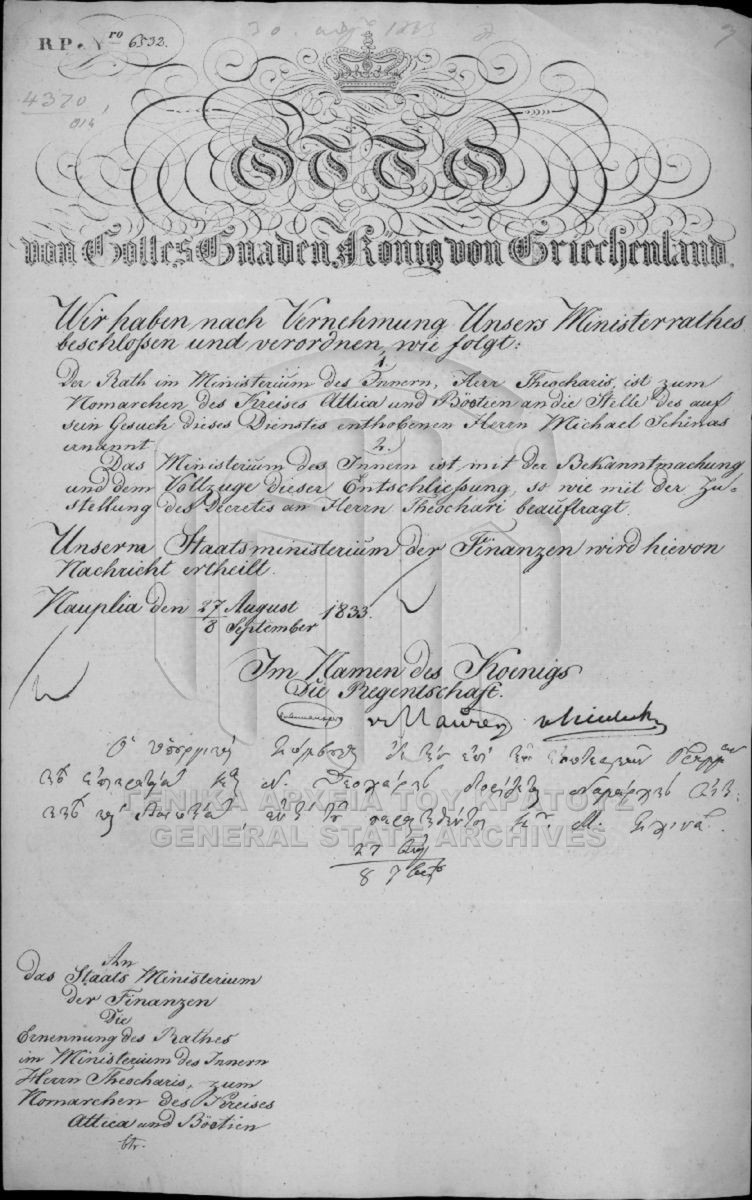 R.P. Nro 6532.
4370
OTTO
von Gottes Gnaden König von Griechenland.
Wir haben nach Vernehmung Unsers Ministerrathes
beschloßen und verordnen, wie folgt:
1.
Der Rath im Ministerium des Innern, Herr Theocharis, ist zum
Nomarchen des Kreises Attica und Böotien an die Stelle des auf
sein Gesuch dieses Dienstes enthobenen Herrn Michael Schinas
ernannt.
2.
Das Ministerium des Innern ist mit der Bekanntmachung
und dem Vollzuge dieser Entschließung, so wie mit der Zu-
stellung des Decretes an Herrn Theochari beauftragt.
Unserm Staatsministerium der Finanzen wird hievon
Nachricht ertheilt.
Nauplia den 27 August / 8 September 1833.
Im Namen des Koenigs
Die Regentschaft.
v. Maurer
Ὁ
Ν. Θεοχάρης Νομάρχης
Μ. Σχινᾶ.
27
8
ΓΕΝΙΚΑ ΑΡΧΕΙΑ ΤΟΥ ΚΡΑΤΟΥΣ
GENERAL STATE ARCHIVES
An
das Staats Ministerium
der Finanzen
Die
Ernennung des Rathes
im Ministerium des Innern
Herrn Theocharis, zum
Nomarchen des Kreises
Attica und Böotien
btr.